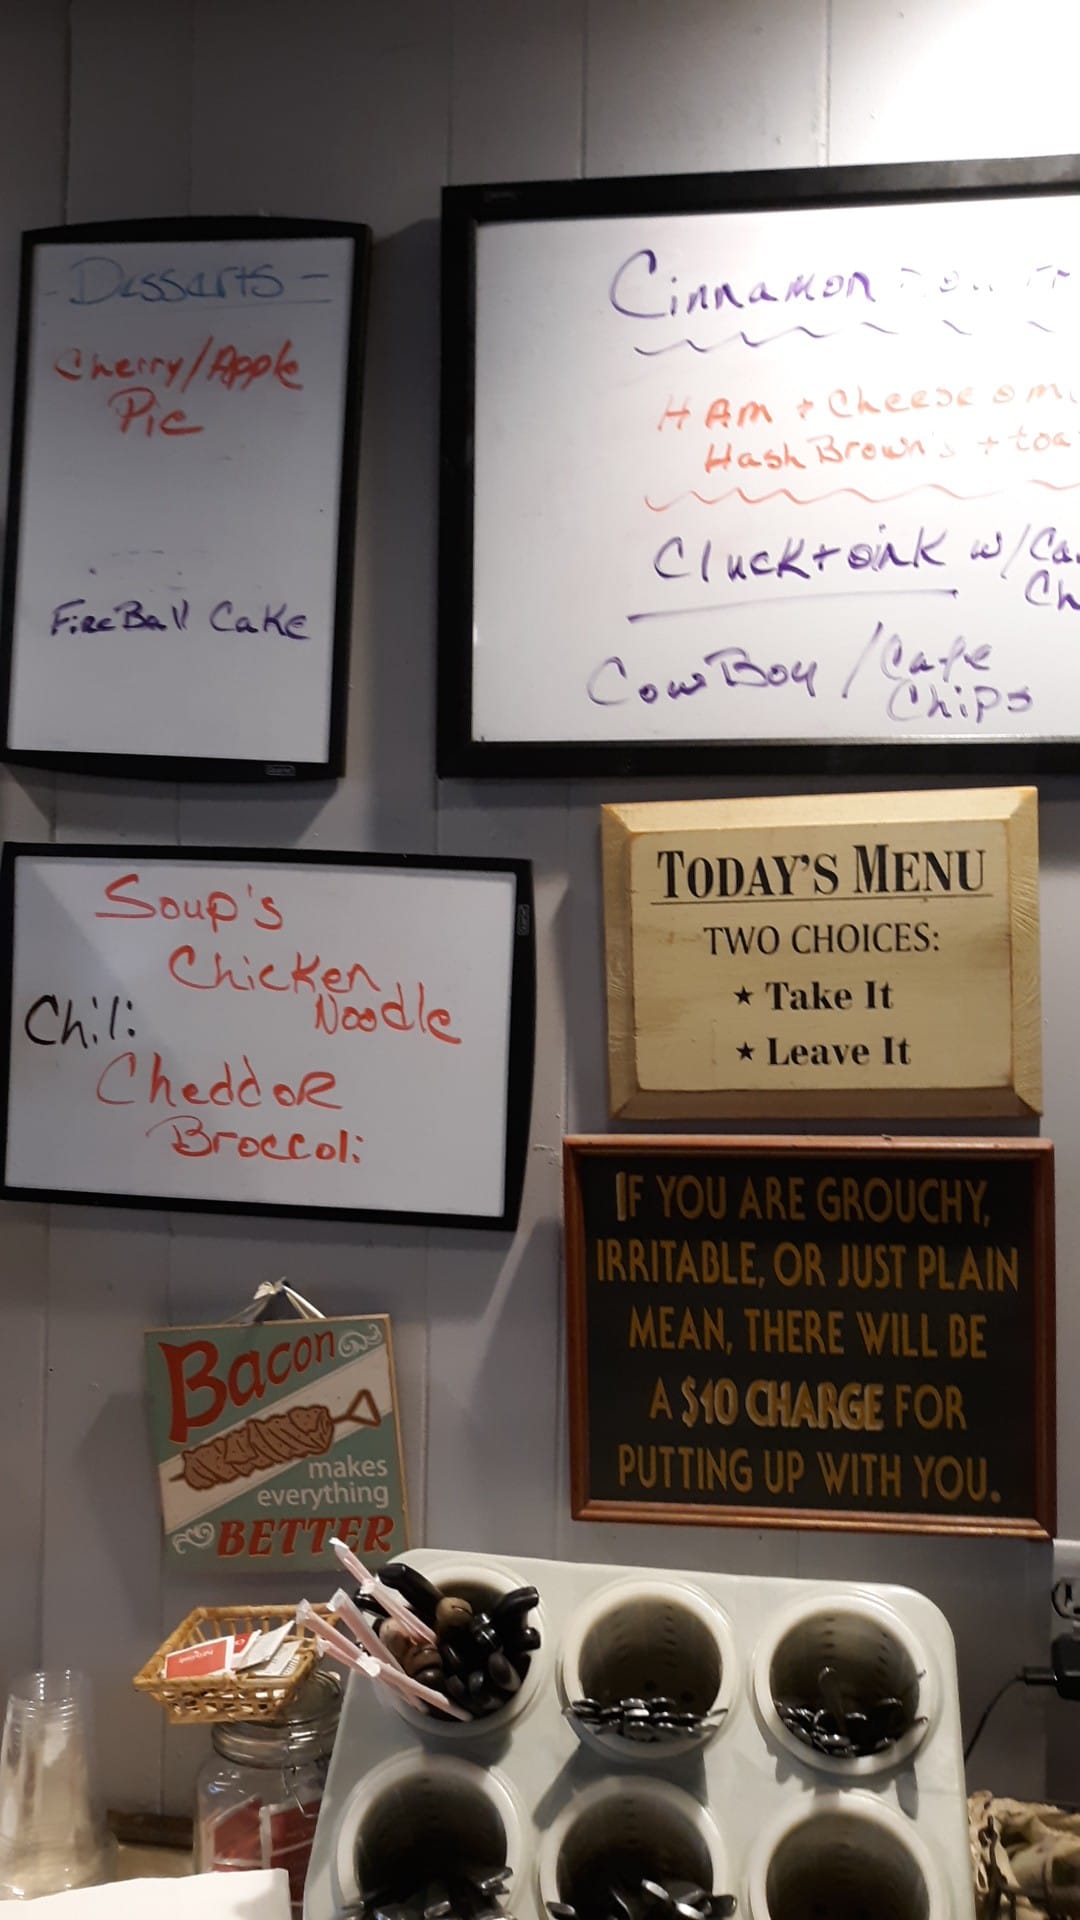 - Desserts -
Cherry/Apple
Pie
FireBall Cake
Cinnamon
HAm + Cheese
Hash Brown's +
Cluck + oink w/
CowBoy / Cafe
Chips
Soup's
Chicken
Noodle
Chili
Cheddor
Broccoli
TODAY'S MENU
TWO CHOICES:
★ Take It
★ Leave It
IF YOU ARE GROUCHY,
IRRITABLE, OR JUST PLAIN
MEAN, THERE WILL BE
A $10 CHARGE FOR
PUTTING UP WITH YOU.
Bacon
makes
everything
BETTER